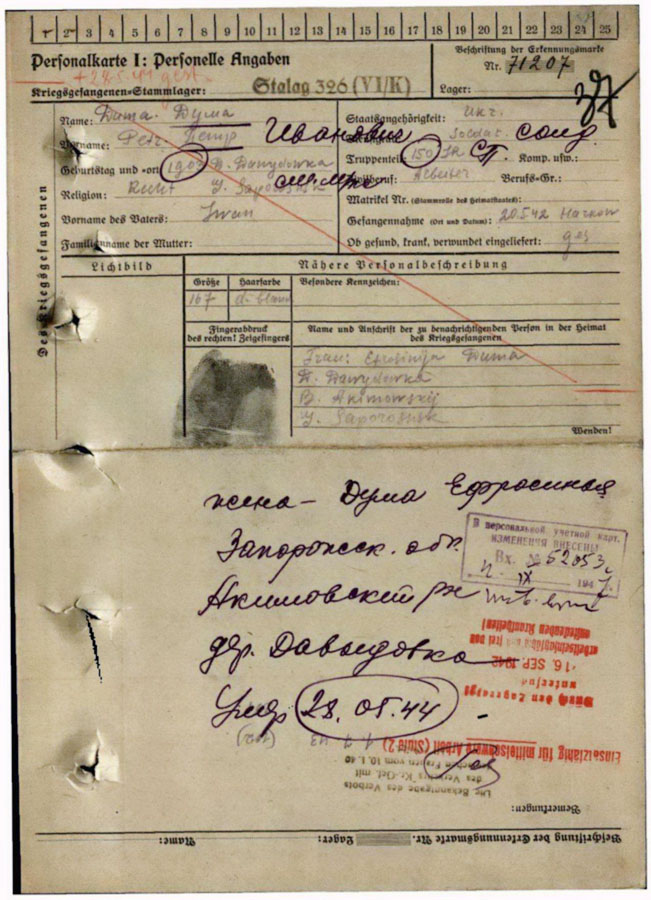 1 2 3 4 5 6 7 8 9 10 11 12 13 14 15 16 17 18 19 20 21 22 23 24 25
Personalkarte I: Personelle Angaben
Beschriftung der Erkennungsmarke
Nr. 71207
+28.5.44 gest.
Kriegsgefangenen-Stammlager: Stalag 326 (VI/K)
Lager:
Des Kriegsgefangenen
Name: Duma Дума
Staatsangehörigkeit: Ukr.
Vorname: Petr Петр Иванович
Soldat солд.
Geburtstag und -ort D. Dawydowka
Truppenteil: 150 Komp. usw.:
Zivilberuf: Arbeiter Berufs-Gr.:
Religion:
Matrikel Nr. (Stammrolle des Heimatstaates):
Vorname des Vaters: Iwan
Gefangennahme (Ort und Datum): 20.5.42 Harkow
Familienname der Mutter:
Ob gesund, krank, verwundet eingeliefert: ges
Lichtbild
Nähere Personalbeschreibung
Größe Haarfarbe Besondere Kennzeichen:
167 d. blond
Fingerabdruck
des rechten! Zeigefingers
Name und Anschrift der zu benachrichtigenden Person in der Heimat
des Kriegsgefangenen
Frau: Efrosinja Duma
D. Dawydowka
Akimowskij
Saporoshsk
Wenden!
жена - Дума Ефросиния
Запорожск. обл.
Акимовский
дер. Давыдовка
Умер 28.05.44
В персональной учетной карт.
ИЗМЕНЕНИЯ ВНЕСЕНЫ
Вх. № 52053
IX 1947
mitteilenden Krankheiten!
arbeitseinsatzfähig und frei von
16. SEP. 1942
untersucht
Durch den Lagerarzt
Einsatzfähig für mittelschwere Arbeit (Stufe 2)
Die Bekanntgabe des Verbots
des Verkehrs Kr.-Gef. mit
deutschen Frauen vom 10.1.40
Bemerkungen:
Beschriftung der Erkennungsmarke Nr. Lager: Name: